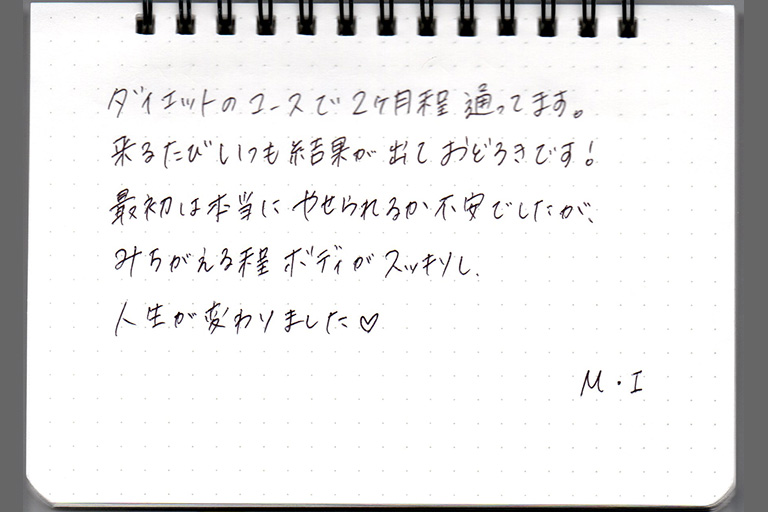 ダイエットのコースで2ケ月程通ってます。
来るたびいつも結果が出ておどろきです!
最初は本当にやせられるか不安でしたが、
みちがえる程ボディがスッキリし、
人生が変わりました♡
M・I